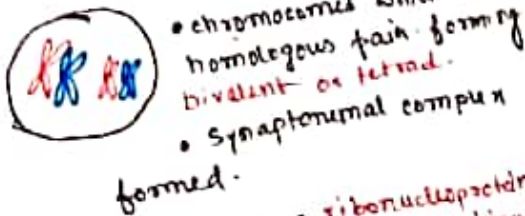 • chromocomes
homologous pair forming
bivalent or tetrad.
• Synaptonemal complex
formed.
ribonucleoprotein